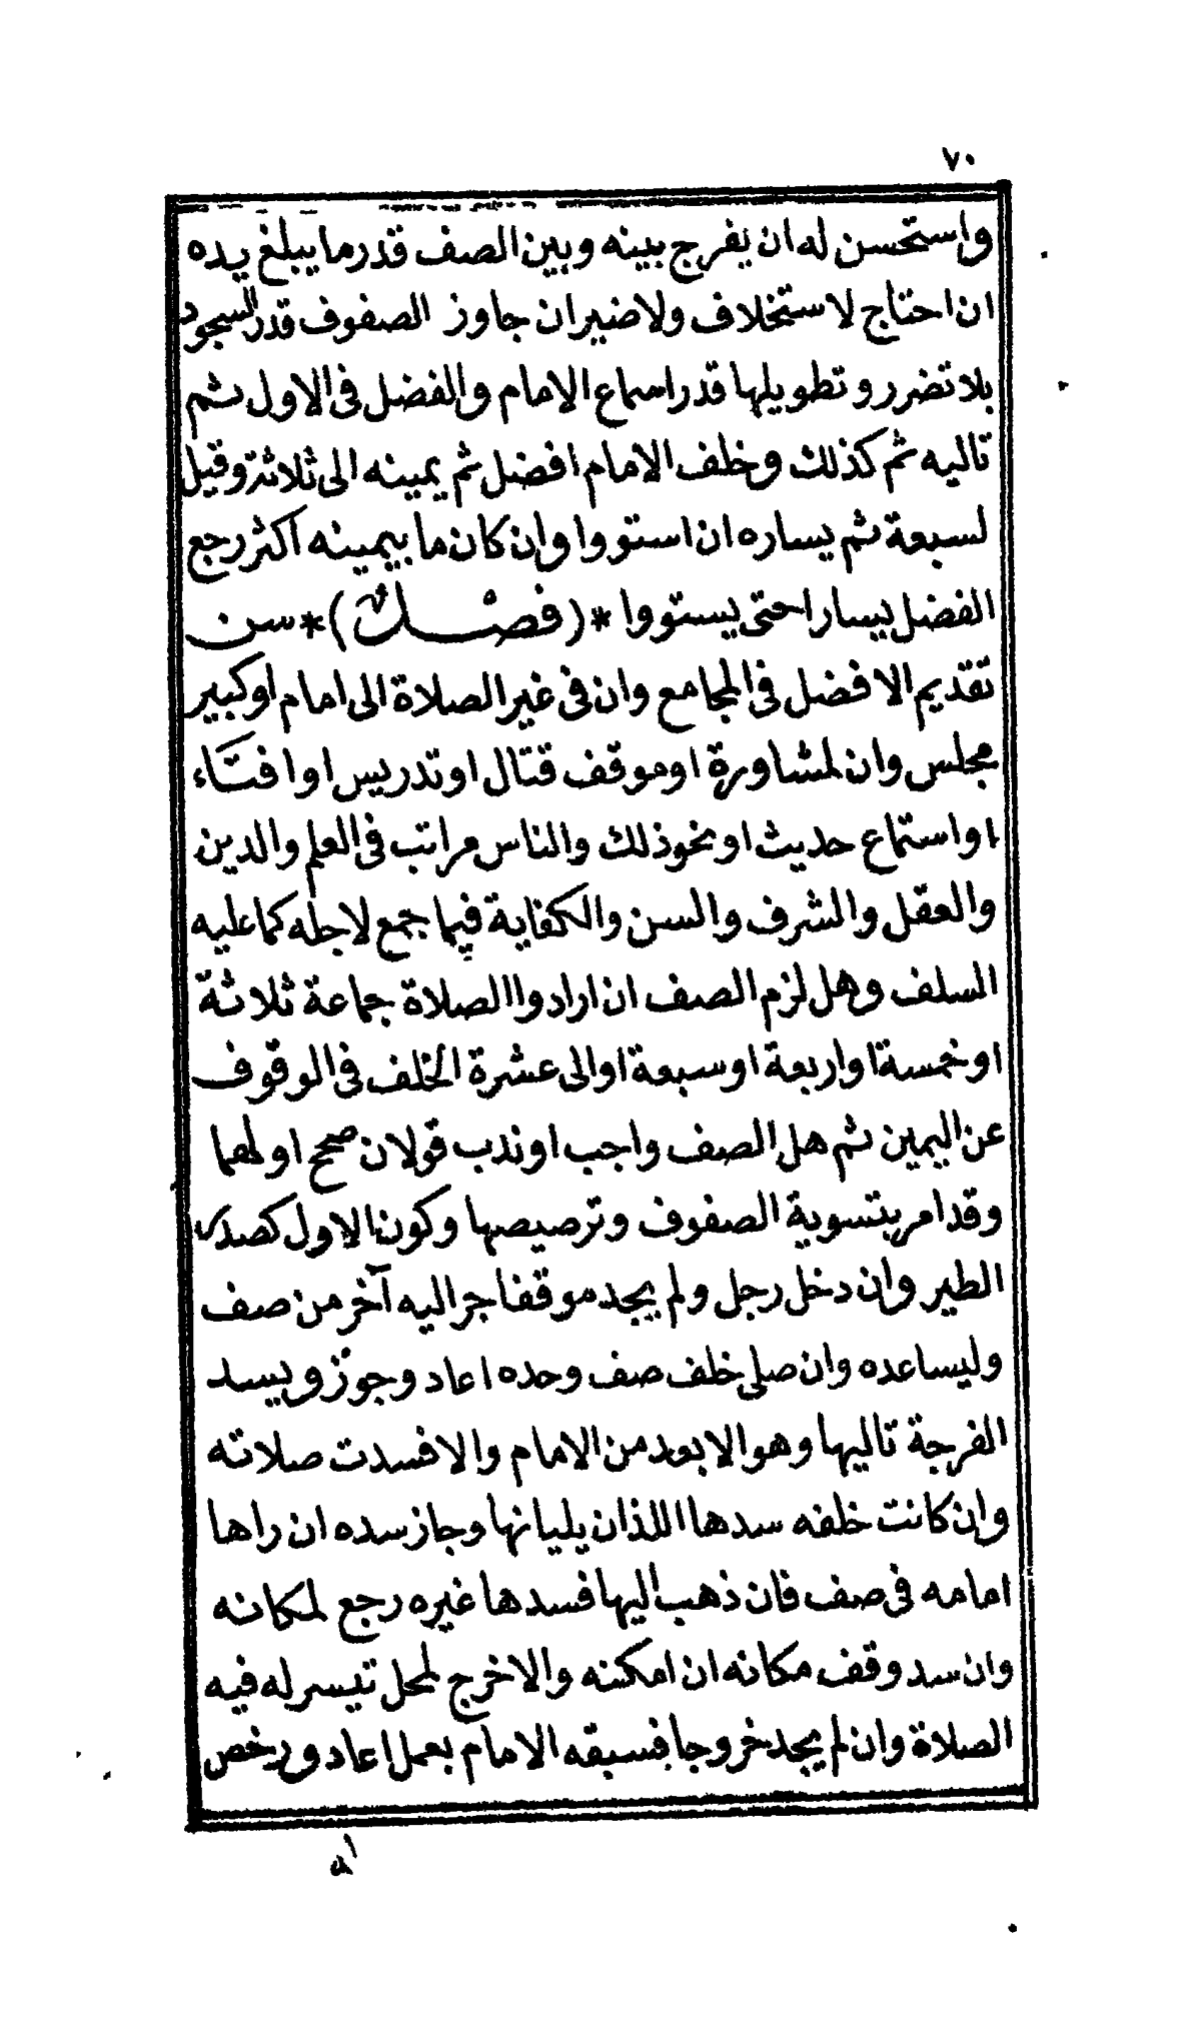 ٧٠
واستحسن له ان يفرج بينه وبين الصف قدر ما يبلغ يده
ان احتاج لاستخلاف ولا ضيران جاوز الصفوف قدر السجود
بلا تضرر وتطويلها قدر اسماع الامام والفضل فى الاول ثم
تاليه ثم كذلك وخلف الامام افضل ثم يمينه الى ثلاثة وقيل
لسبعة ثم يساره ان استووا وان كان ما بيمينه اكثر رجع
الفضل يسارا حتى يستووا *(فصل)* سن
تقديم الافضل فى المجامع وان فى غير الصلاة الى امام او كبير
مجلس وان لمشاورة او موقف قتال او تدريس او افتاء
او استماع حديث او نحو ذلك والناس مراتب فى العلم والدين
والعقل والشرف والسن والكفاية فيما جمع لاجله كما عليه
السلف وهل لزم الصف ان ارادوا الصلاة جماعة ثلاثة
او خمسة او اربعة او سبعة او الى عشرة الخلف فى الوقوف
عن اليمين ثم هل الصف واجب او ندب قولان صحح اولهما
وقد امر بتسوية الصفوف وترصيصها وكون الاول كصدر
الطير وان دخل رجل ولم يجد موقفا جر اليه آخر من صف
وليساعده وان صلى خلف صف وحده اعاد وجوز ويسد
الفرجة تاليها وهو الابعد من الامام والا فسدت صلاته
وان كانت خلفه سدها اللذان يليانها وجاز سده ان راها
امامه فى صف فان ذهب اليها فسدها غيره رجع لمكانه
وان سد وقف مكانه ان امكنه والا خرج لمحل تيسر له فيه
الصلاة وان لم يجد خروجا فسبقه الامام بعمل اعاد ورخص